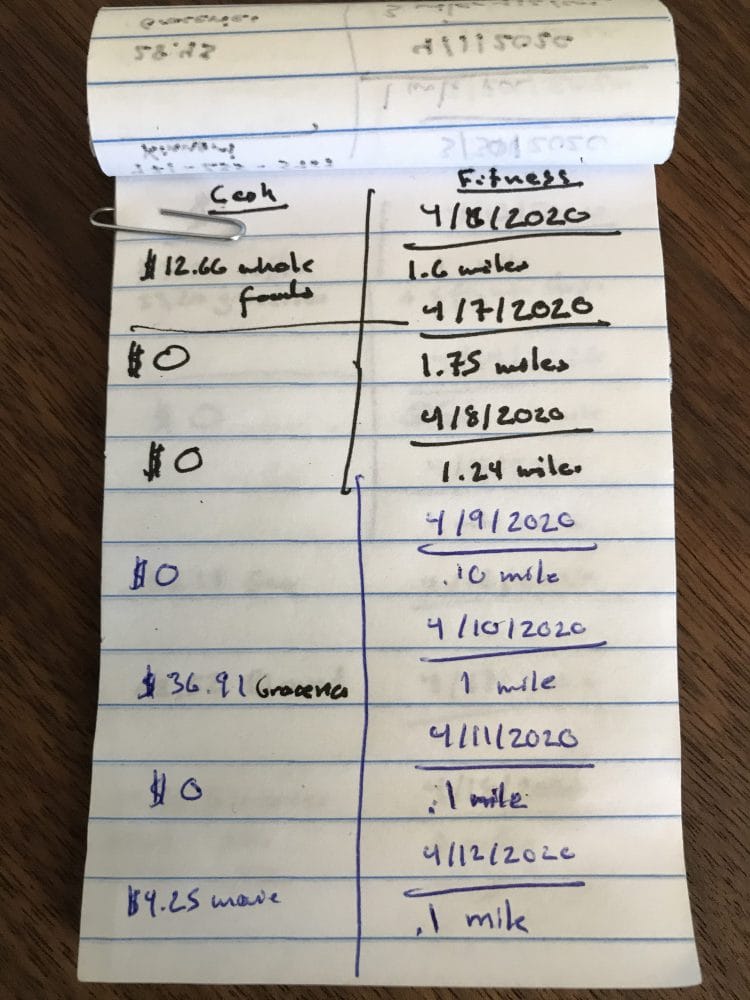 Cash Fitness
4/8/2020
$12.66 whole 1.6 miles
foods
4/7/2020
$0 1.75 miles
4/8/2020
$0 1.24 miles
4/9/2020
$0 .10 mile
4/10/2020
$36.91 Groceries 1 mile
4/11/2020
$0 .1 mile
4/12/2020
$4.25 movie .1 mile